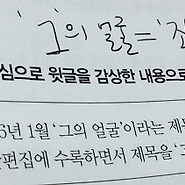 '그'의 얼굴 = '
심으로 윗글을 감상한 내용으로
6년 1월 '그의 얼굴'이라는 제
편집에 수록하면서 제목을 '